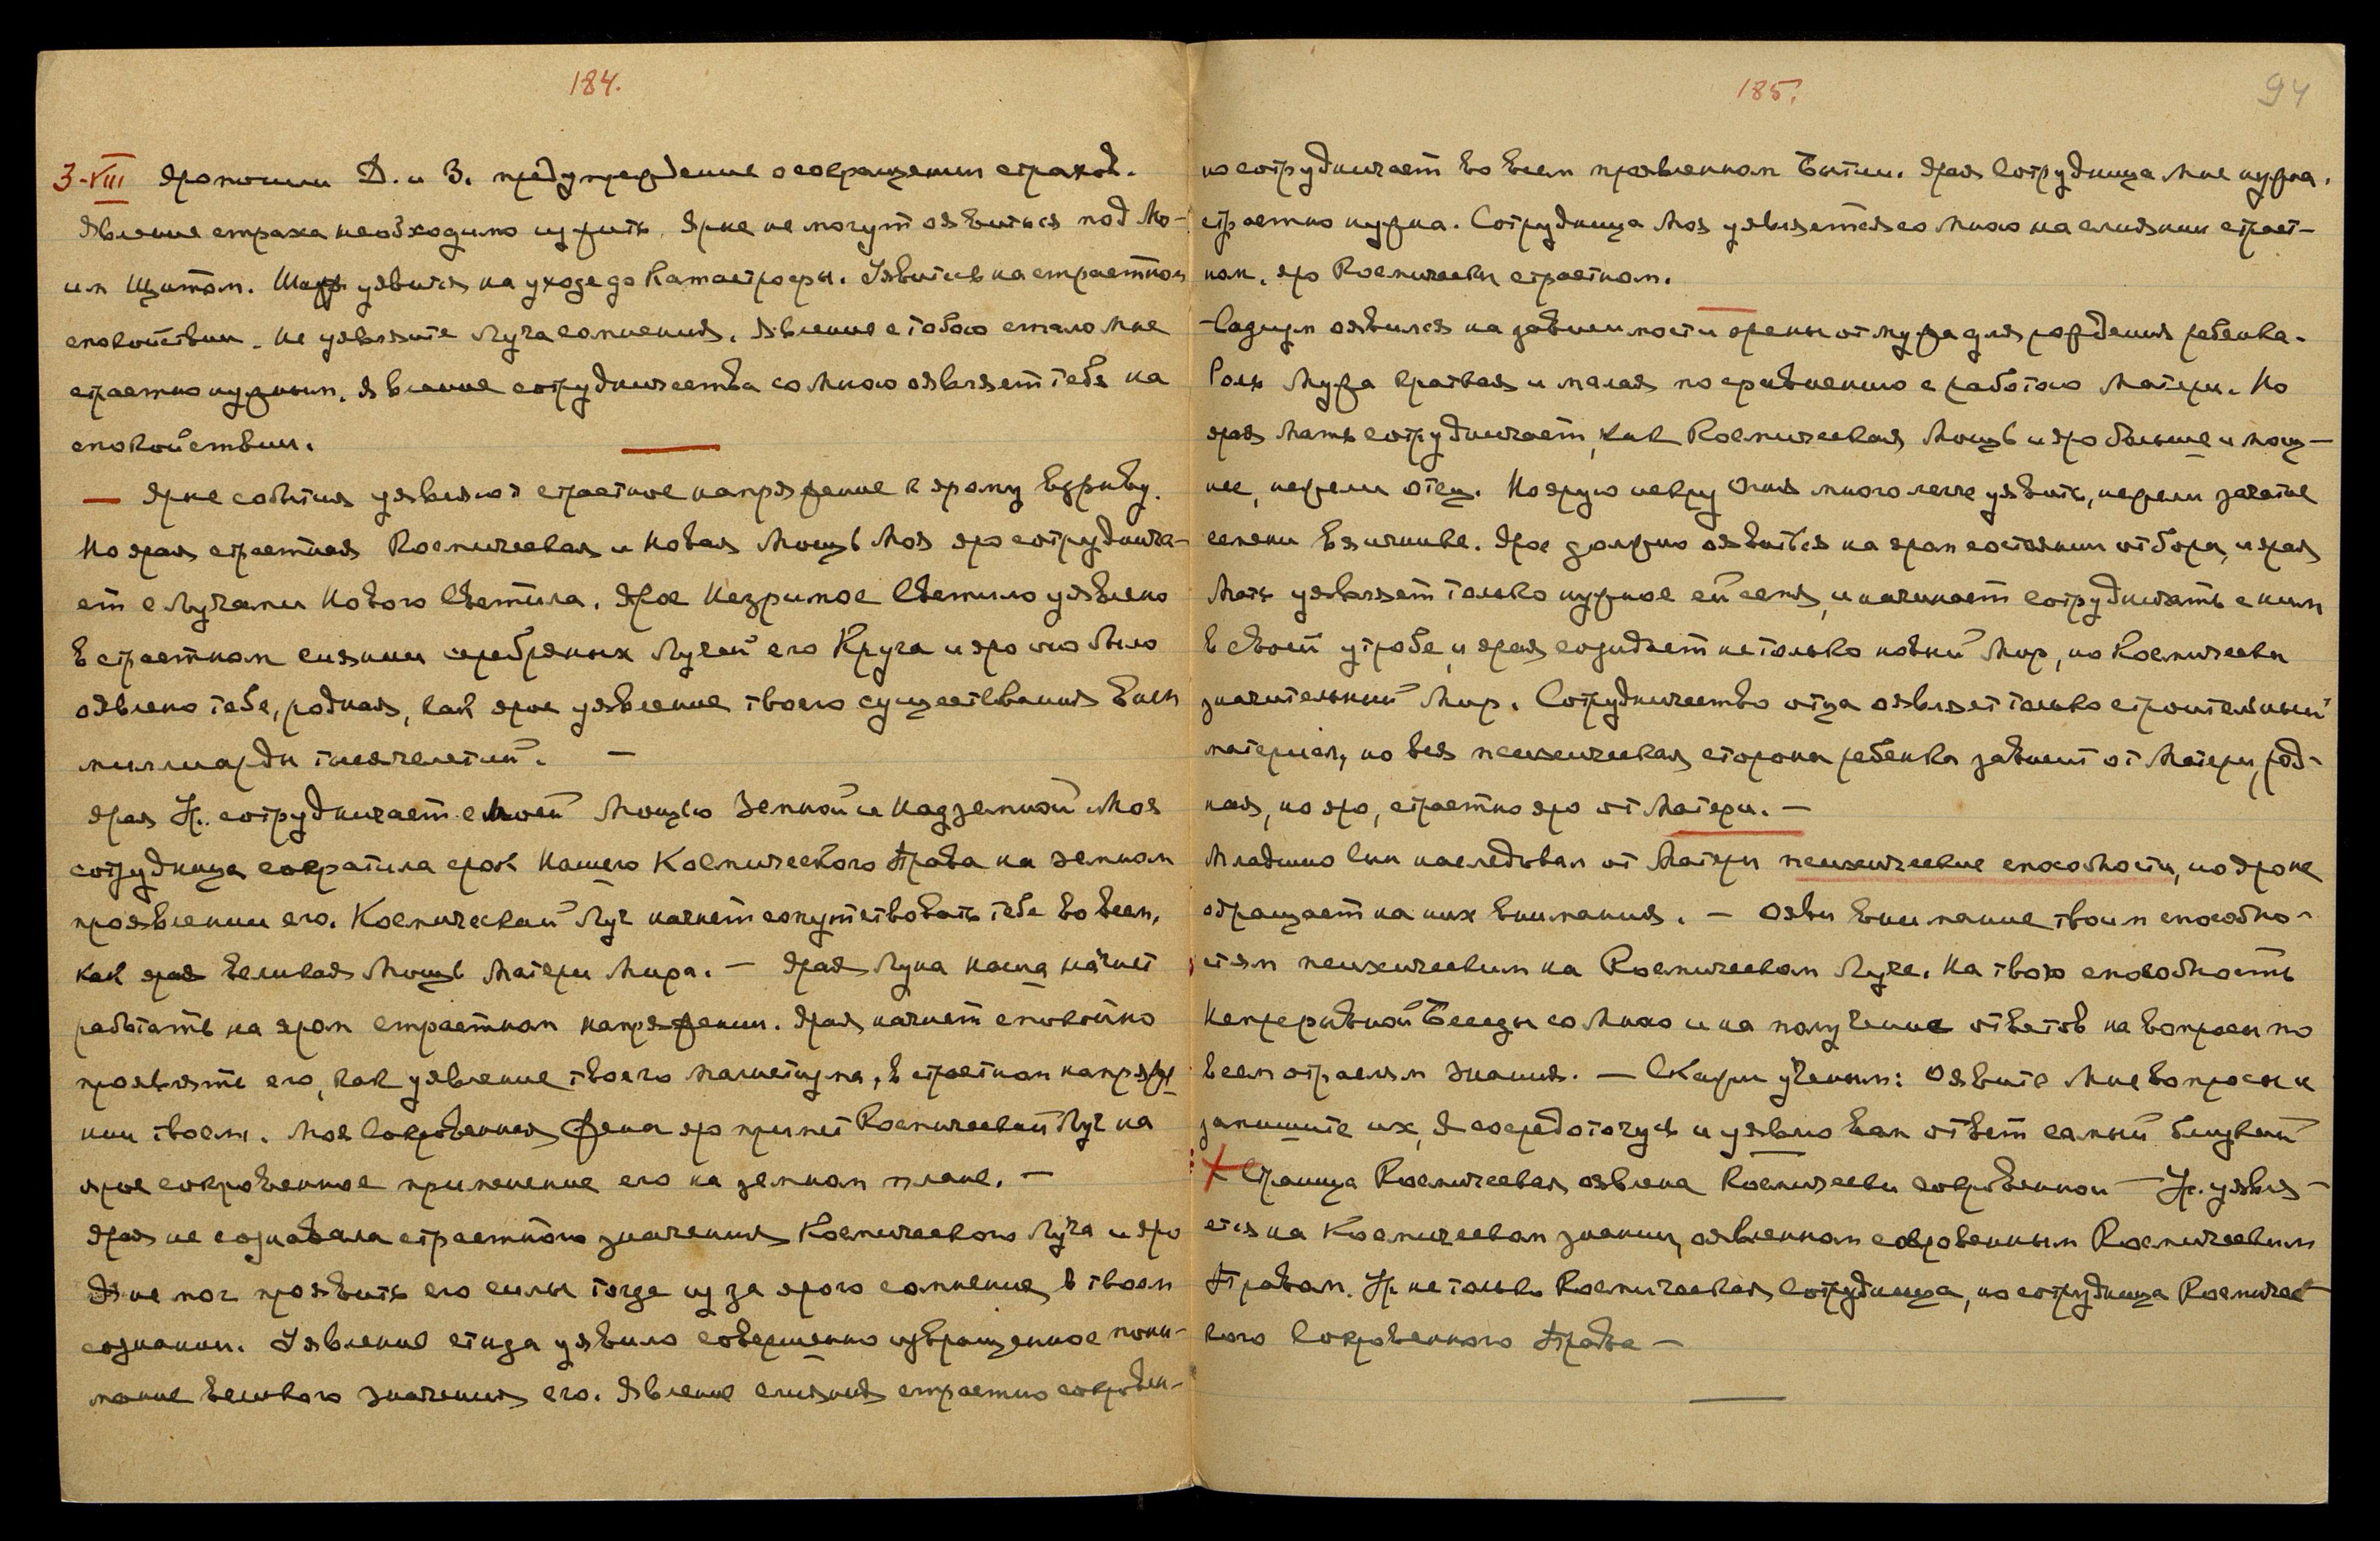 184.
3-VIII Яро пошли Д. и З. предупреждение о сокращении страхов.
Явление страха необходимо изжить. Ярые не могут оявиться под Мо-
им Щитом. уявится на уходе до Катастрофы. Уявитесь на страстном
спокойствии. Не уявляйте Луча сомнения. Явление с тобою стало Мне
страстно нужным. Явление сотрудничества со Мною оявляет тебя на
спокойствии.
— Ярые события уявляют страстное напряжение к ярому взрыву.
Но ярая страстная Космическая и Новая Мощь Моя яро сотруднича-
ет с Лучами Нового Светила. Ярое Незримое Светило уявлено
в страстном сиянии серебряных Лучей его Круга и яро оно было
оявлено тебе, родная, как ярое уявление твоего существования в нем
миллиарды тысячелетий. —
Ярая Ур. сотрудничает с Моей Мощью Земной и Надземной и Моя
сотрудница сократила срок Нашего Космического Права на земном
проявлении его. Космический Луч начнет сопутствовать тебе во всем,
как ярая великая Мощь Матери Мира. — Ярая Луна начнет
работать на яром страстном напряжении. Ярая начнет спокойно
проявлять его, как уявление твоего магнетизма, в страстном напряже-
нии твоем. Моя Сокровенная Жена яро примет Космический Луч на
ярое сокровенное применение его на земном плане. —
Ярая не сознавала страстного значения Космического Луча и яро
Я не мог проявить его силы тогда из за ярого сомнения в твоем
сознании. Уявление стыда уявило совершенно извращенное пони-
мание великого значения его. Явление слияния страстно сокровен-
185. 94
но сотрудничает во всем проявленном Бытии. Ярая Сотрудница Мне нужна,
страстно нужна. Сотрудница Моя уявляется со Мною на слиянии страст-
ном, яро Космически страстном.
— Садизм оявился на зависимости жены от мужа для рождения ребенка.
Роль Мужа краткая и малая по сравнению с работою Матери. Но
ярая Мать сотрудничает, как Космическая Мощь и яро больше и мощ-
нее, нежели Отец. Но ярую искру Огня много легче уявить, нежели зачатие
семени в яичнике. Ярое должно оявиться на яром состоянии отбора, и ярая
Мать уявляет только нужное ей семя, и начинает сотрудничать с ним
в своей утробе, и ярая создает не только новый Мир, но Космически
значительный Мир. Сотрудничество отца оявляет только строительный
материал, но вся психическая сторона ребенка зависит от Матери, род-
ная, но яро, страстно яро от Матери. —
Младший Сын наследовал от Матери психические способности, но яро не
обращает на них внимания. — Ояви внимание твоим способно-
стям психическим на Космическом Луче. На твою способность
Непрерывной Беседы со Мною и на получение ответов на вопросы по
всем отраслям Знания. — Скажи ученым: Оявите Мне вопросы и
запишите их, Я сосредоточусь и уявлю вам ответ самый близкий
х Страница Космическая оявлена Космически сокровенной — Ур. уявля-
ется на Космическом знании, оявленном сокровенным Космическим
Правом. Ур. не только Космическая Сотрудница, но сотрудница Космичес-
кого Сокровенного Права —